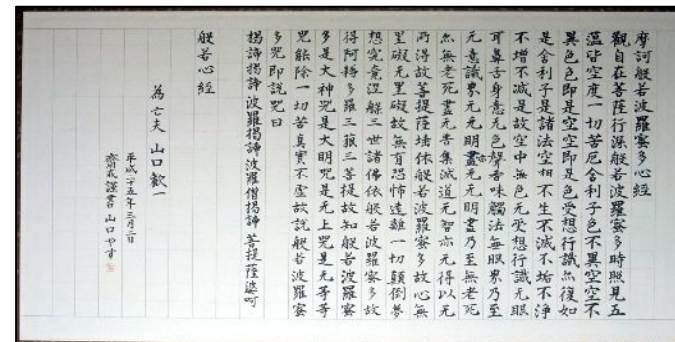 摩訶般若波羅蜜多心経
觀自在菩薩行深般若波羅蜜多時照見五
蘊皆空度一切苦厄舎利子色不異空空不
異色色即是空空即是色受想行識亦復如
是舎利子是諸法空相不生不滅不垢不浄
不増不減是故空中無色无受想行識无眼
耳鼻舌身意无色聲香味觸法無眼界乃至
无意識界无无明盡亦无无明盡乃至無老死
亦無老死盡无苦集滅道无智亦无得以无
所得故菩提薩埵依般若波羅蜜多故心無
罣礙无罣礙故無有恐怖遠離一切顛倒夢
想究竟涅槃三世諸佛依般若波羅蜜多故
得阿耨多羅三藐三菩提故知般若波羅蜜
多是大神咒是大明咒是无上咒是无等等
咒能除一切苦真實不虚故説般若波羅蜜
多咒即説咒曰
揭諦揭諦波羅揭諦波羅僧揭諦菩提薩婆呵
般若心経
為亡夫 山口歓一
平成二十五年三月三日
齋戒謹書 山口やす